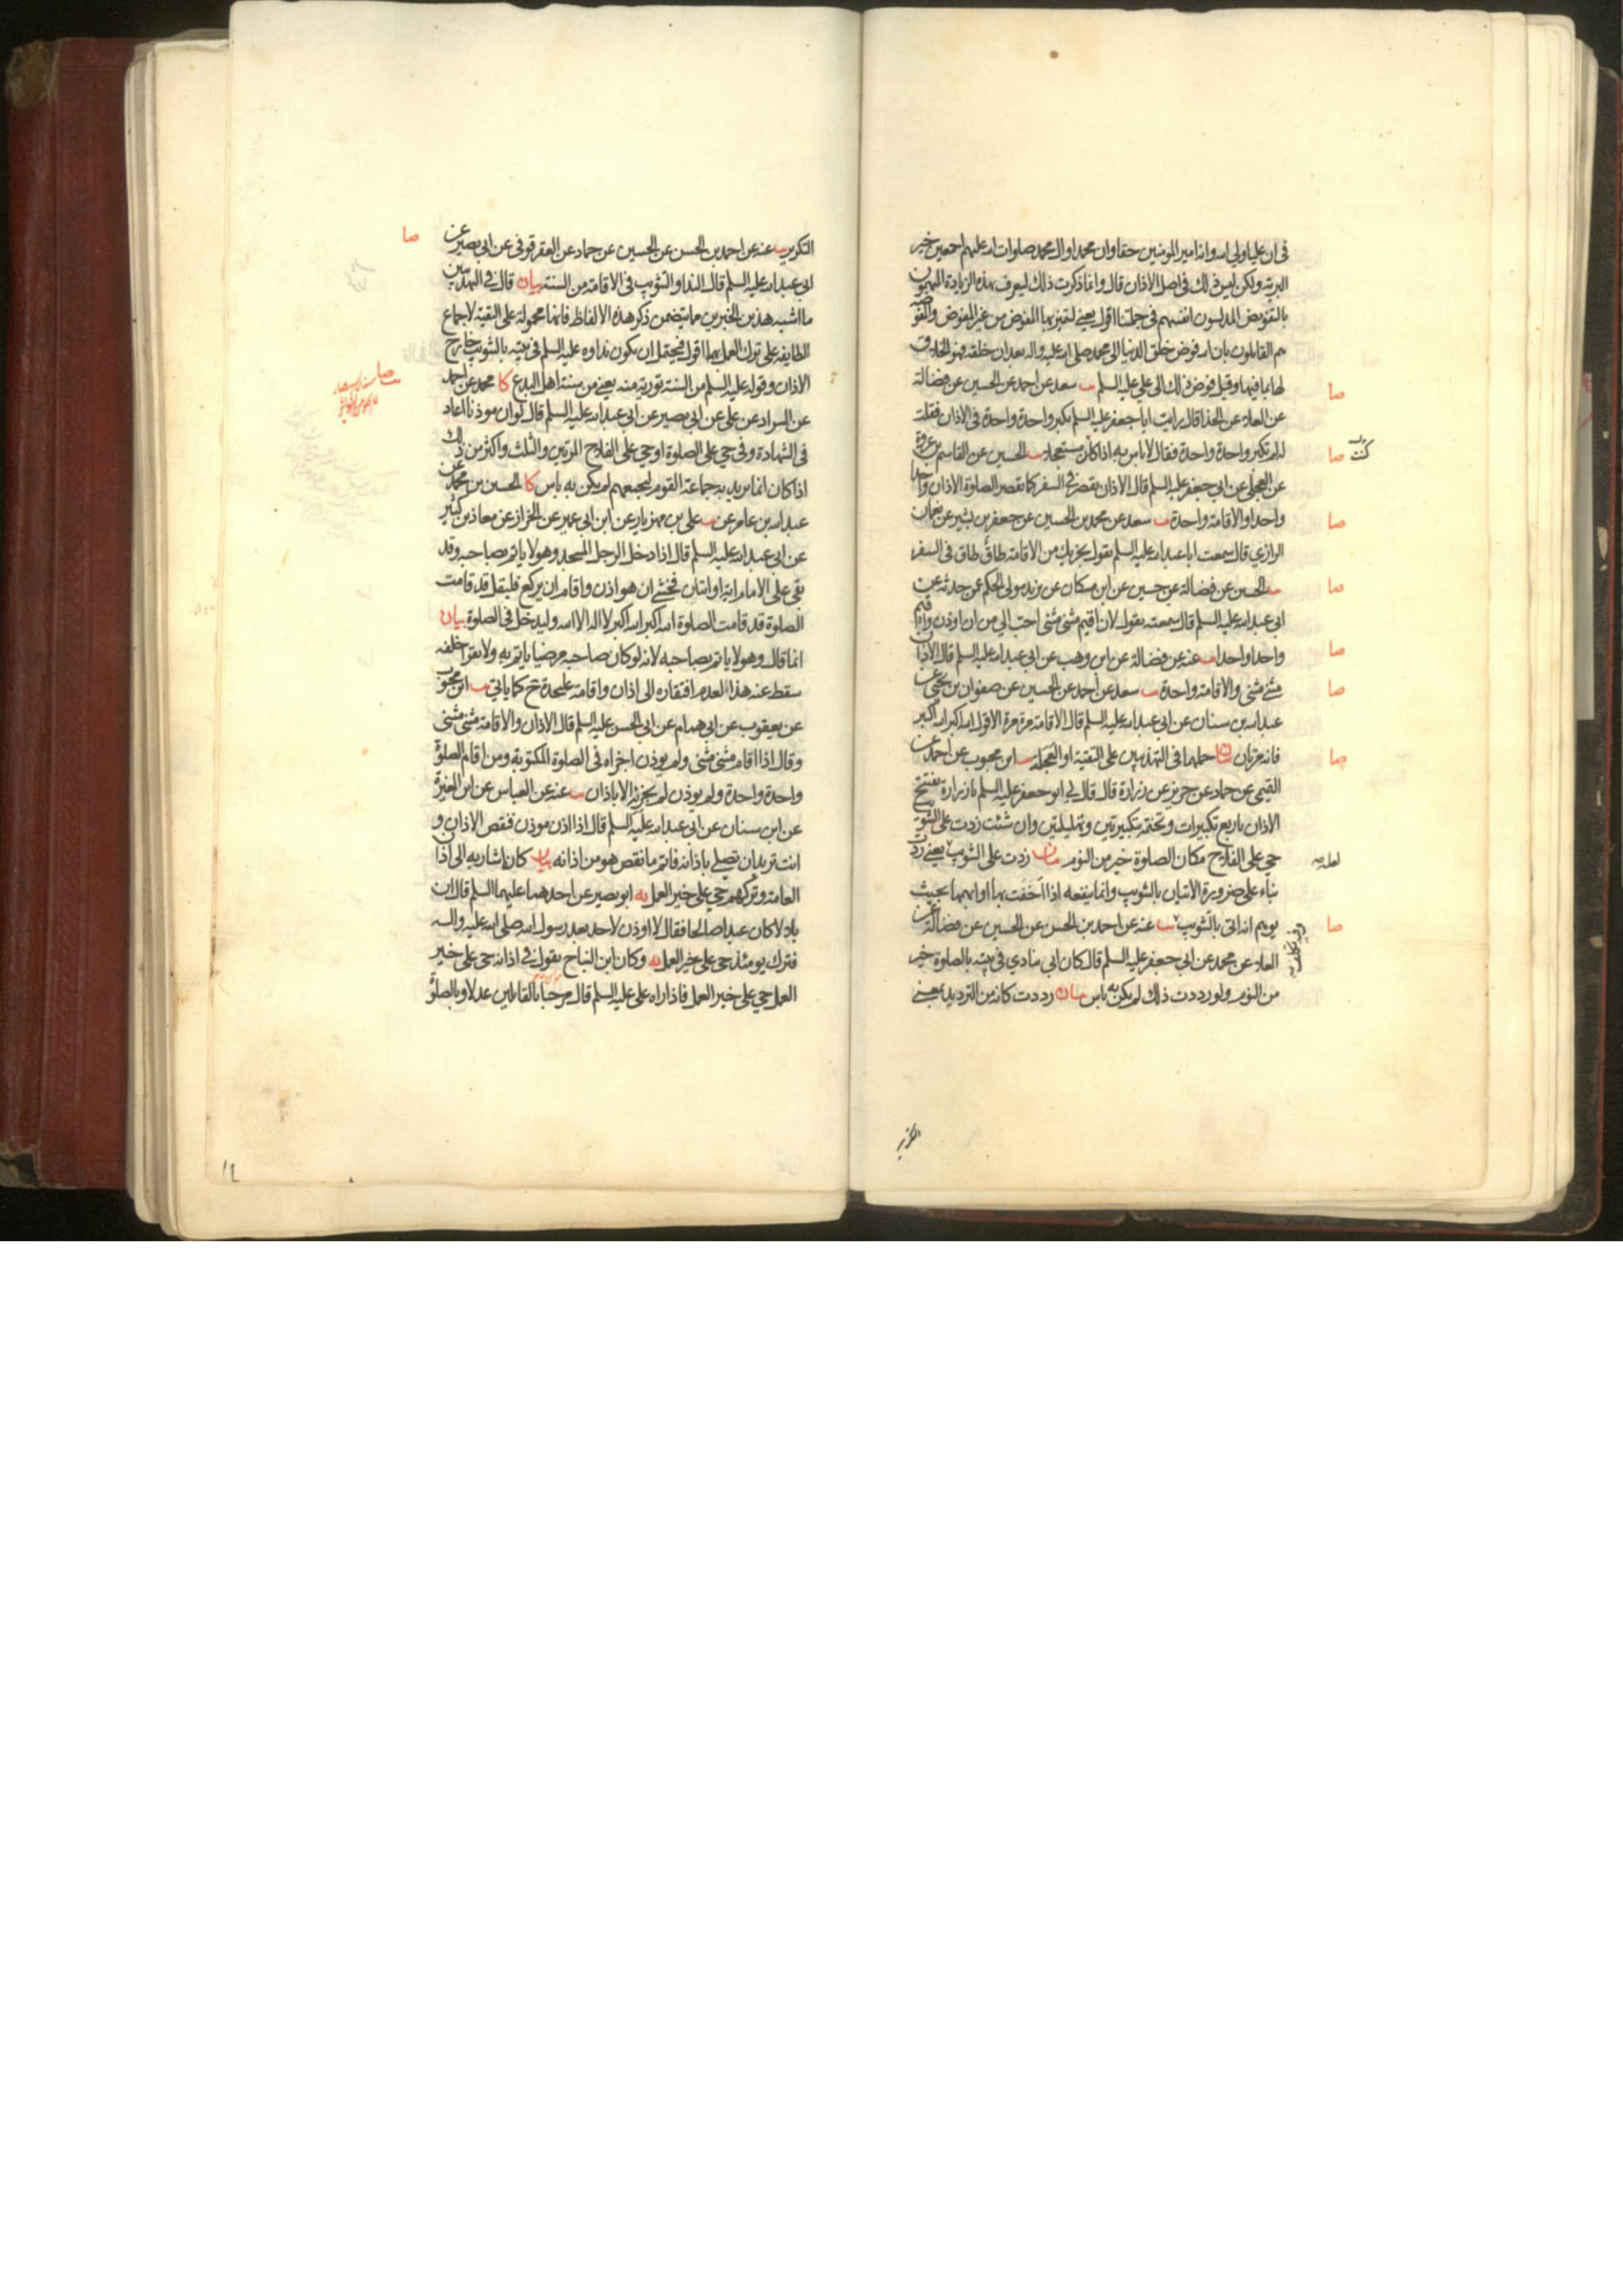 في ان عليا ولي الله وانه امير المومنين حقا وان محمدا وال محمد صلوات الله عليهم اجمعين خير
البرية ولكن ليس ذلك في اصل الاذان قال وانما ذكرت ذلك ليعرف بهذه الزيادة المتهمون
بالتفويض المدلسون انفسهم في جملتنا اقول يعني لتميز بها المفوض من غير المفوض والمفوضه
هم القايلون بان الله فوض خلق الدنيا الى محمد صلى الله عليه واله بعد ان خلقه فهو الخلاق
لها بما فيها وقيل فوض ذلك الى علي عليه السلم يب سعد عن احمد عن الحسين عن فضالة
عن العلاء عن الحذا قال رايت ابا جعفر عليه السلم يكبر واحدة واحدة في الاذان فقلت
له لم تكبر واحدة واحدة فقال لا باس به اذا كان مستعجلا يب الحسين عن القاسم بن عروة
عن العجلي عن ابي جعفر عليه السلم قال الاذان يقصر في السفر كما يقصر الصلوة الاذان واحدا
واحدا والاقامة واحدة يب سعد عن محمد بن الحسين عن جعفر بن بشير عن نعمان
الرازي قال سمعت ابا عبد الله عليه السلم يقول يجزيك من الاقامة طاق طاق في السفر
يب الحسين عن فضالة عن حسين عن ابن مسكان عن يزيد مولى الحكم عمن حدثه عن
ابي عبد الله عليه السلم قال سمعته يقول لان اقيم مثنى مثنى احب الي من ان اوذن واقيم
واحدا واحدا يب عنه عن فضالة عن ابن وهب عن ابي عبد الله عليه السلم قال الاذان
مثنى مثنى والاقامة واحدة يب سعد عن احمد عن الحسين عن صفوان بن يحيى عن
عبد الله بن سنان عن ابي عبد الله عليه السلم قال الاقامة مرة مرة الا قول الله اكبر الله اكبر
فانه مرتان بيان حملها في التهذيبين على التقية او العجلة يب ابن محبوب عن احمد عن
التميمي عن حماد عن حريز عن زرارة قال قال لي ابو جعفر عليه السلم يا زرارة تفتتح
الاذان باربع تكبيرات وتختمه بتكبيرتين وتهليلتين وان شئت زدت على التثويب
حي على الفلاح مكان الصلوة خير من النوم بيان زدت على التثويب يعني زدت
بناء على ضرورة الاتيان بالتثويب وانما ينفعه اذا اخفت بها او ابهمها بحيث
يوهم انه اتى بالتثويب يب عنه عن احمد بن الحسن عن الحسين عن فضالة عن
العلاء عن محمد عن ابي جعفر عليه السلم قال كان ابي ينادي في بيته بالصلوة خير
من النوم ولو رددت ذلك لم يكن به باس بيان رددت كانه من الترديد بمعنى
صا
صا
صا
صا
صا
صا
صا
صا
التكرير يب عنه عن احمد بن الحسن عن الحسين عن حماد عن العقرقوفي عن ابي بصير عن
ابي عبد الله عليه السلم قال النداء والتثويب في الاقامة من السنة بيان قال في التهذيبين
ما اشبه هذين الخبرين مما يتضمن ذكر هذه الالفاظ فانها محمولة على التقية لاجماع
الطايفة على ترك العمل بها اقول فيحتمل ان يكون نداوه عليه السلم في بيته بالتثويب خارج
الاذان وقوله عليه السلم من السنة تورية منه يعني من سنة اهل البدع كا محمد عن احمد
عن السراد عن علي عن ابي بصير عن ابي عبد الله عليه السلم قال لو ان موذنا اعاد
في الشهادة وفي حي على الصلوة او حي على الفلاح المرتين والثلث واكثر من ذلك
اذا كان انما يريد به جماعة القوم ليجمعهم لم يكن به باس كا الحسين بن محمد عن
عبد الله بن عامر عن يب علي بن مهزيار عن ابن ابي عمير عن الخراز عن معاذ بن كثير
عن ابي عبد الله عليه السلم قال اذا دخل الرجل المسجد وهو لا ياتم بصاحبه وقد
بقي على الامام اية او ايتان فخشي ان هو اذن واقام ان يركع فليقل قد قامت
الصلوة قد قامت الصلوة الله اكبر الله اكبر لا اله الا الله وليدخل في الصلوة بيان
انما قال وهو لا ياتم بصاحبه لانه لو كان صاحبه مرضيا ياتم به ولا يقرا خلفه
سقط عنه هذا العدم افتقاره الى اذان واقامة عليحدة ح كما ياتي يب ابن محبوب
عن يعقوب عن ابي همام عن ابي الحسن عليه السلم قال الاذان والاقامة مثنى مثنى
وقال اذا اقام مثنى مثنى ولم يوذن اجزاه في الصلوة المكتوبة ومن اقام الصلوة
واحدة واحدة ولم يوذن لم يجزئه الا باذان يب عنه عن العباس عن ابن المغيرة
عن ابن سنان عن ابي عبد الله عليه السلم قال اذا اذن موذن فنقص الاذان و
انت تريد ان تصلي باذانه فاتم ما نقص هو من اذانه بيان كان اشار به الى اذان
العامة وتركهم حي على خير العمل يه ابو بصير عن احدهما عليهما السلم قال ان
بلالا كان عبدا صالحا فقال لا اوذن لاحد بعد رسول الله صلى الله عليه واله
فترك يومئذ حي على خير العمل يه وكان ابن النباح يقول في اذانه حي على خير
العمل حي على خير العمل فاذا راه علي عليه السلم قال مرحبا بالقايلين عدلا وبالصلوة
صا
صا